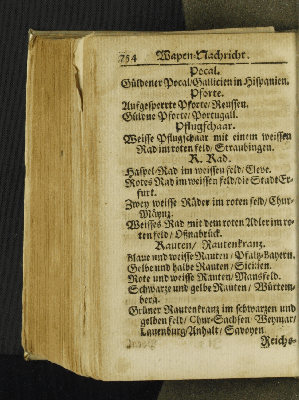 754 Wapen-Nachricht.
Pocal.
Güldener Pocal/Gallicien in Hispanien.
Pforte.
Aufgesperrte Pforte/Reussen.
Güldne Pforte/Portugall.
Pflugschaar.
Weisse Pflugschaar mit einem weissen
Rad im roten feld/Straubingen.
R. Rad.
Haspel-Rad im weissen feld/Cleve.
Rotes Rad im weissen feld/die Stadt Er-
furt.
Zwey weisse Räder im roten feld/Chur-
Mäyntz.
Weisses Rad mit dem roten Adler im ro-
ten feld/Oßnabrück.
Rauten/Rautenkrantz.
Blaue und weisse Rauten/Pfaltz-Bayern.
Gelbe und halbe Rauten/Sicilien.
Rote und weisse Rauten/Mansfeld.
Schwartze und gelbe Rauten/Würtem-
berg.
Grüner Rautenkrantz im schwartzen und
gelben feld/Chur-Sachsen/Weymar/
Lauenburg/Anhalt/Savoyen.
Reichs-